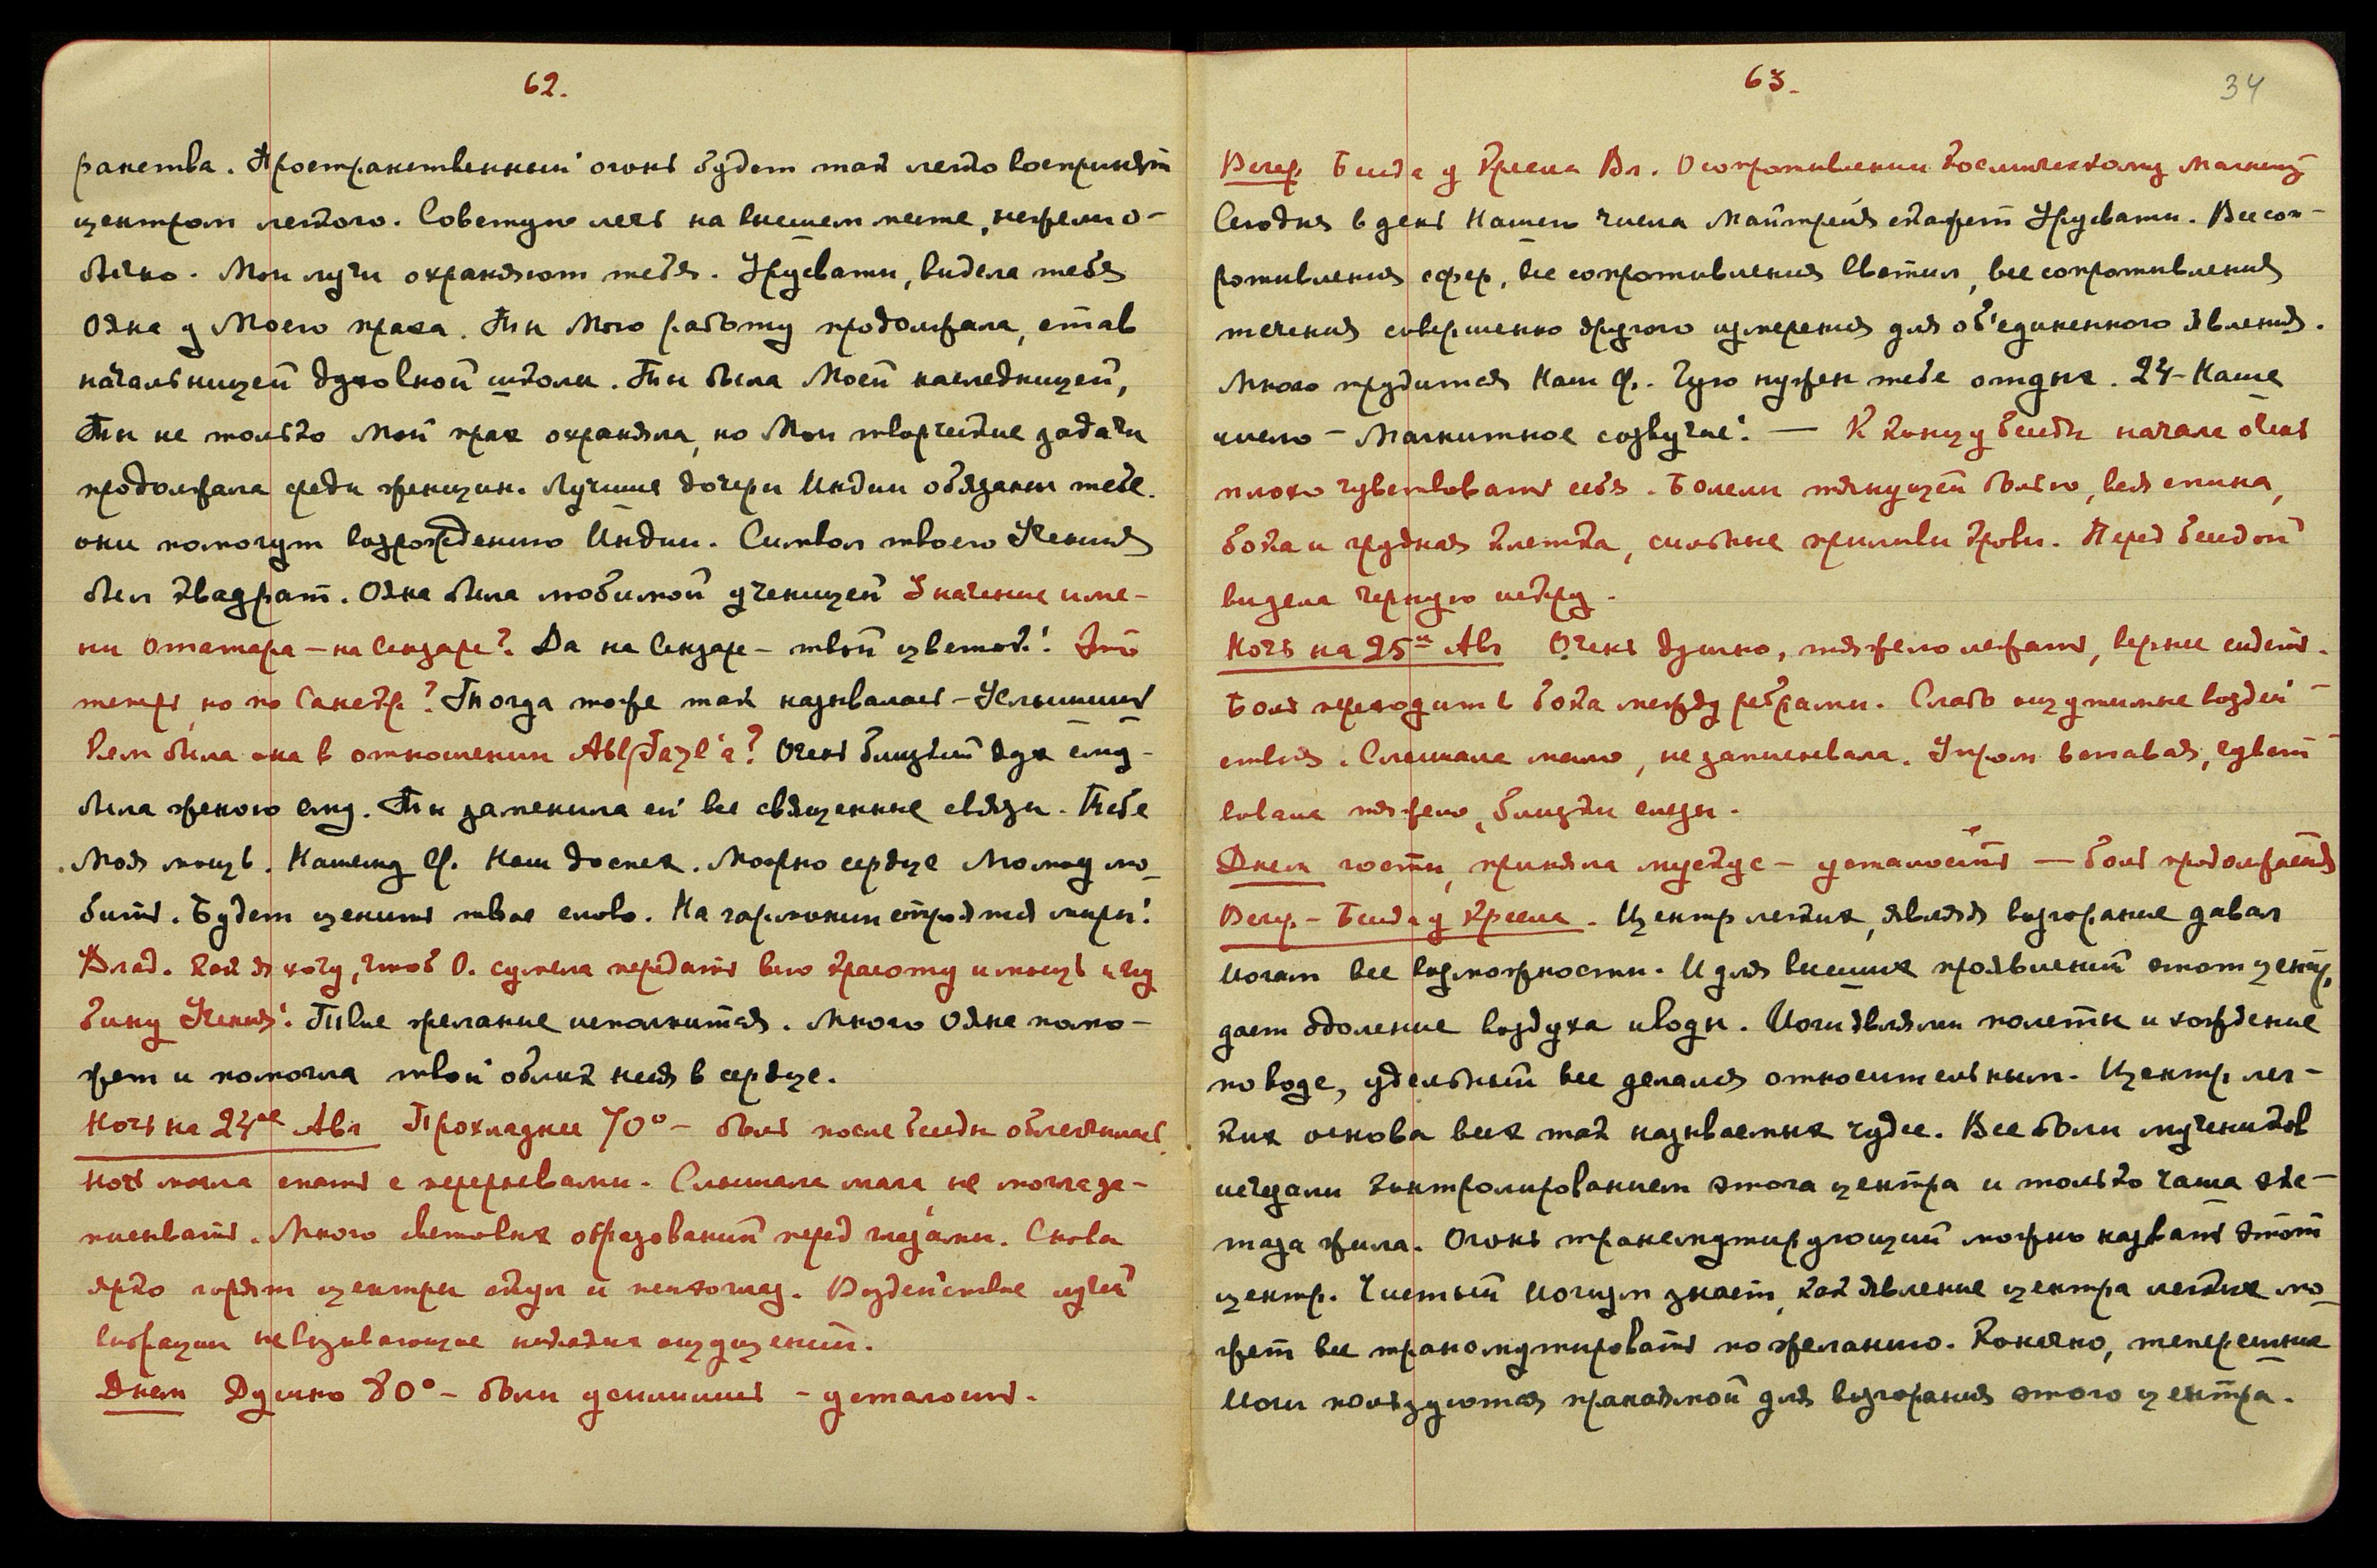 62.
ранства. Пространственный огонь будет так легко воспринят
центром легкого. Советую лечь на внешнем месте, нежели о-
бычно. Мои лучи охраняют тебя. Урусвати, видела тебя
Ояна у Моего праха. Ты Мою работу продолжала, став
начальницей духовной школы. Ты была Моей наследницей,
Ты не только Мой прах охраняла, но Мои творческие задачи
продолжала среди женщин. Лучшие дочери Индии обязаны тебе.
они помогут возрождению Индии. Символ твоего Учения
был квадрат. Ояна была любимой ученицей Значение име-
ни Отатара – на Сензаре? Да на Сензаре – твой цветок! Это
теперь, но по Санскр.? Тогда тоже так называлась – Услышишь
Кем была она в отношении Abl Fazl'а? Очень близкий дух ему –
была женою ему. Ты заменила ей все священные связи. Тебе
Моя мощь. Нашему Ф. Наш доспех. Можно сердце Момму лю-
бить. Будем ценить твое слово. На гармонии строятся миры!
Влад. Как я хочу, чтоб О. сумела передать всю красоту и мощь и глу
бину Учения! Твое желание исполнится. Много Ояне помо-
жет и помогла твой облик неся в сердце.
Ночь на 24ое Авг Прохладнее 70° – боль после беседы облегчилась
ночь могла спать с перерывами. Слышала мало, не могла за-
писывать. Много световых образований перед глазами. Снова
ярко горят центры скул и под глаз. Воздействие лучей
вибрации не вызывающие никаких ощущений.
Днем Душно 80° – боли усилились – усталость.
63.
34
Вечер. Беседа у Кресла Вл. О сопротивлении Космическому Магниту
Сегодня в день Нашего числа Майтрейя скажет Урусвати. Все соп-
ротивления сфер, все сопротивления светил, все сопротивления
течения совершенно другого измерения для об'единенного явления.
Много трудится Наш Ф. Чую нужен тебе отдых. 24 – Наше
число – Магнитное созвучие! — К концу беседы начала очень
плохо чувствовать себя. Болели тянущей болью, вся спина,
бока и грудная клетка, сильные приливы крови. Перед беседой
видела черную искру.
Ночь на 25ое Авг Очень душно, тяжело лежать, вернее сидеть.
Боль переходит в бока между ребрами. Слабо ощутимые воздей-
ствия. Слышала мало, не записывала. Утром вставая, чувст-
вовала тяжело, близки слезы.
Днем гости, приняла мускус – усталость — боль продолжается
Вечер – Беседа у Кресла. Центр легких, являя возгорание давал
Йогам все возможности. И для высших проявлений этот центр,
дает одоление воздуха и воды. Йоги являли полеты и хождение
по воде, удельный вес делался относительным. Центр лег-
ких основа всех так называемых чудес. Все боли мучеников
исчезали контролированием этого центра и только чаша экс-
таза жила. Огонь трансмутирующий можно назвать этот
центр. Чистый Йогизм знает, как явление центра легких мо-
жет все трансмутировать по желанию. Конечно, теперешние
Йоги пользуются пранаямой для возгорания этого центра.